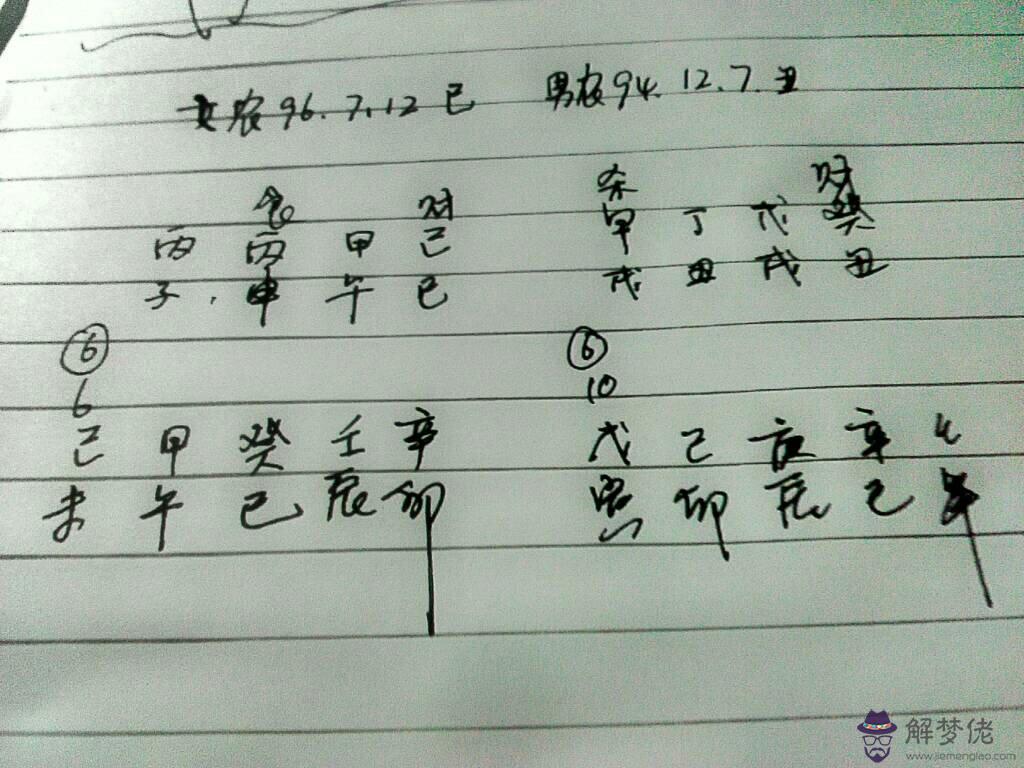 女农96.7.12巳 男农94.12.7.丑
杀 财
食 财
丙 丙 甲 己 甲 丁 戊 癸
子, 申 午 巳 戌 丑 戌 丑
⑥ ⑥
6 10
己 甲 癸 壬 辛 戊 己 辛
未 午 巳 辰 卯 寅 卯 辰 巳
解梦佬
www.jiemenglao.com